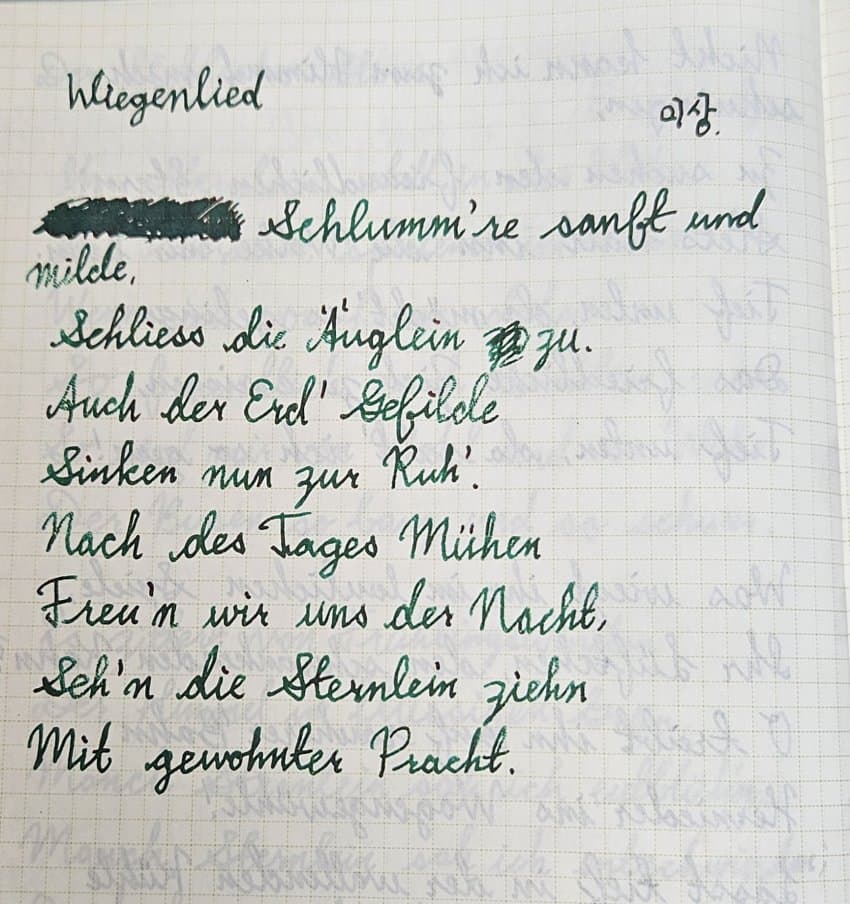 Wiegenlied
미상.
Schlumm're sanft und
milde,
Schliess die Äuglein zu.
Auch der Erd' Gefilde
Sinken nun zur Ruh'.
Nach des Tages Mühen
Freu'n wir uns der Nacht,
Seh'n die Sternlein ziehn
Mit gewohnter Pracht.